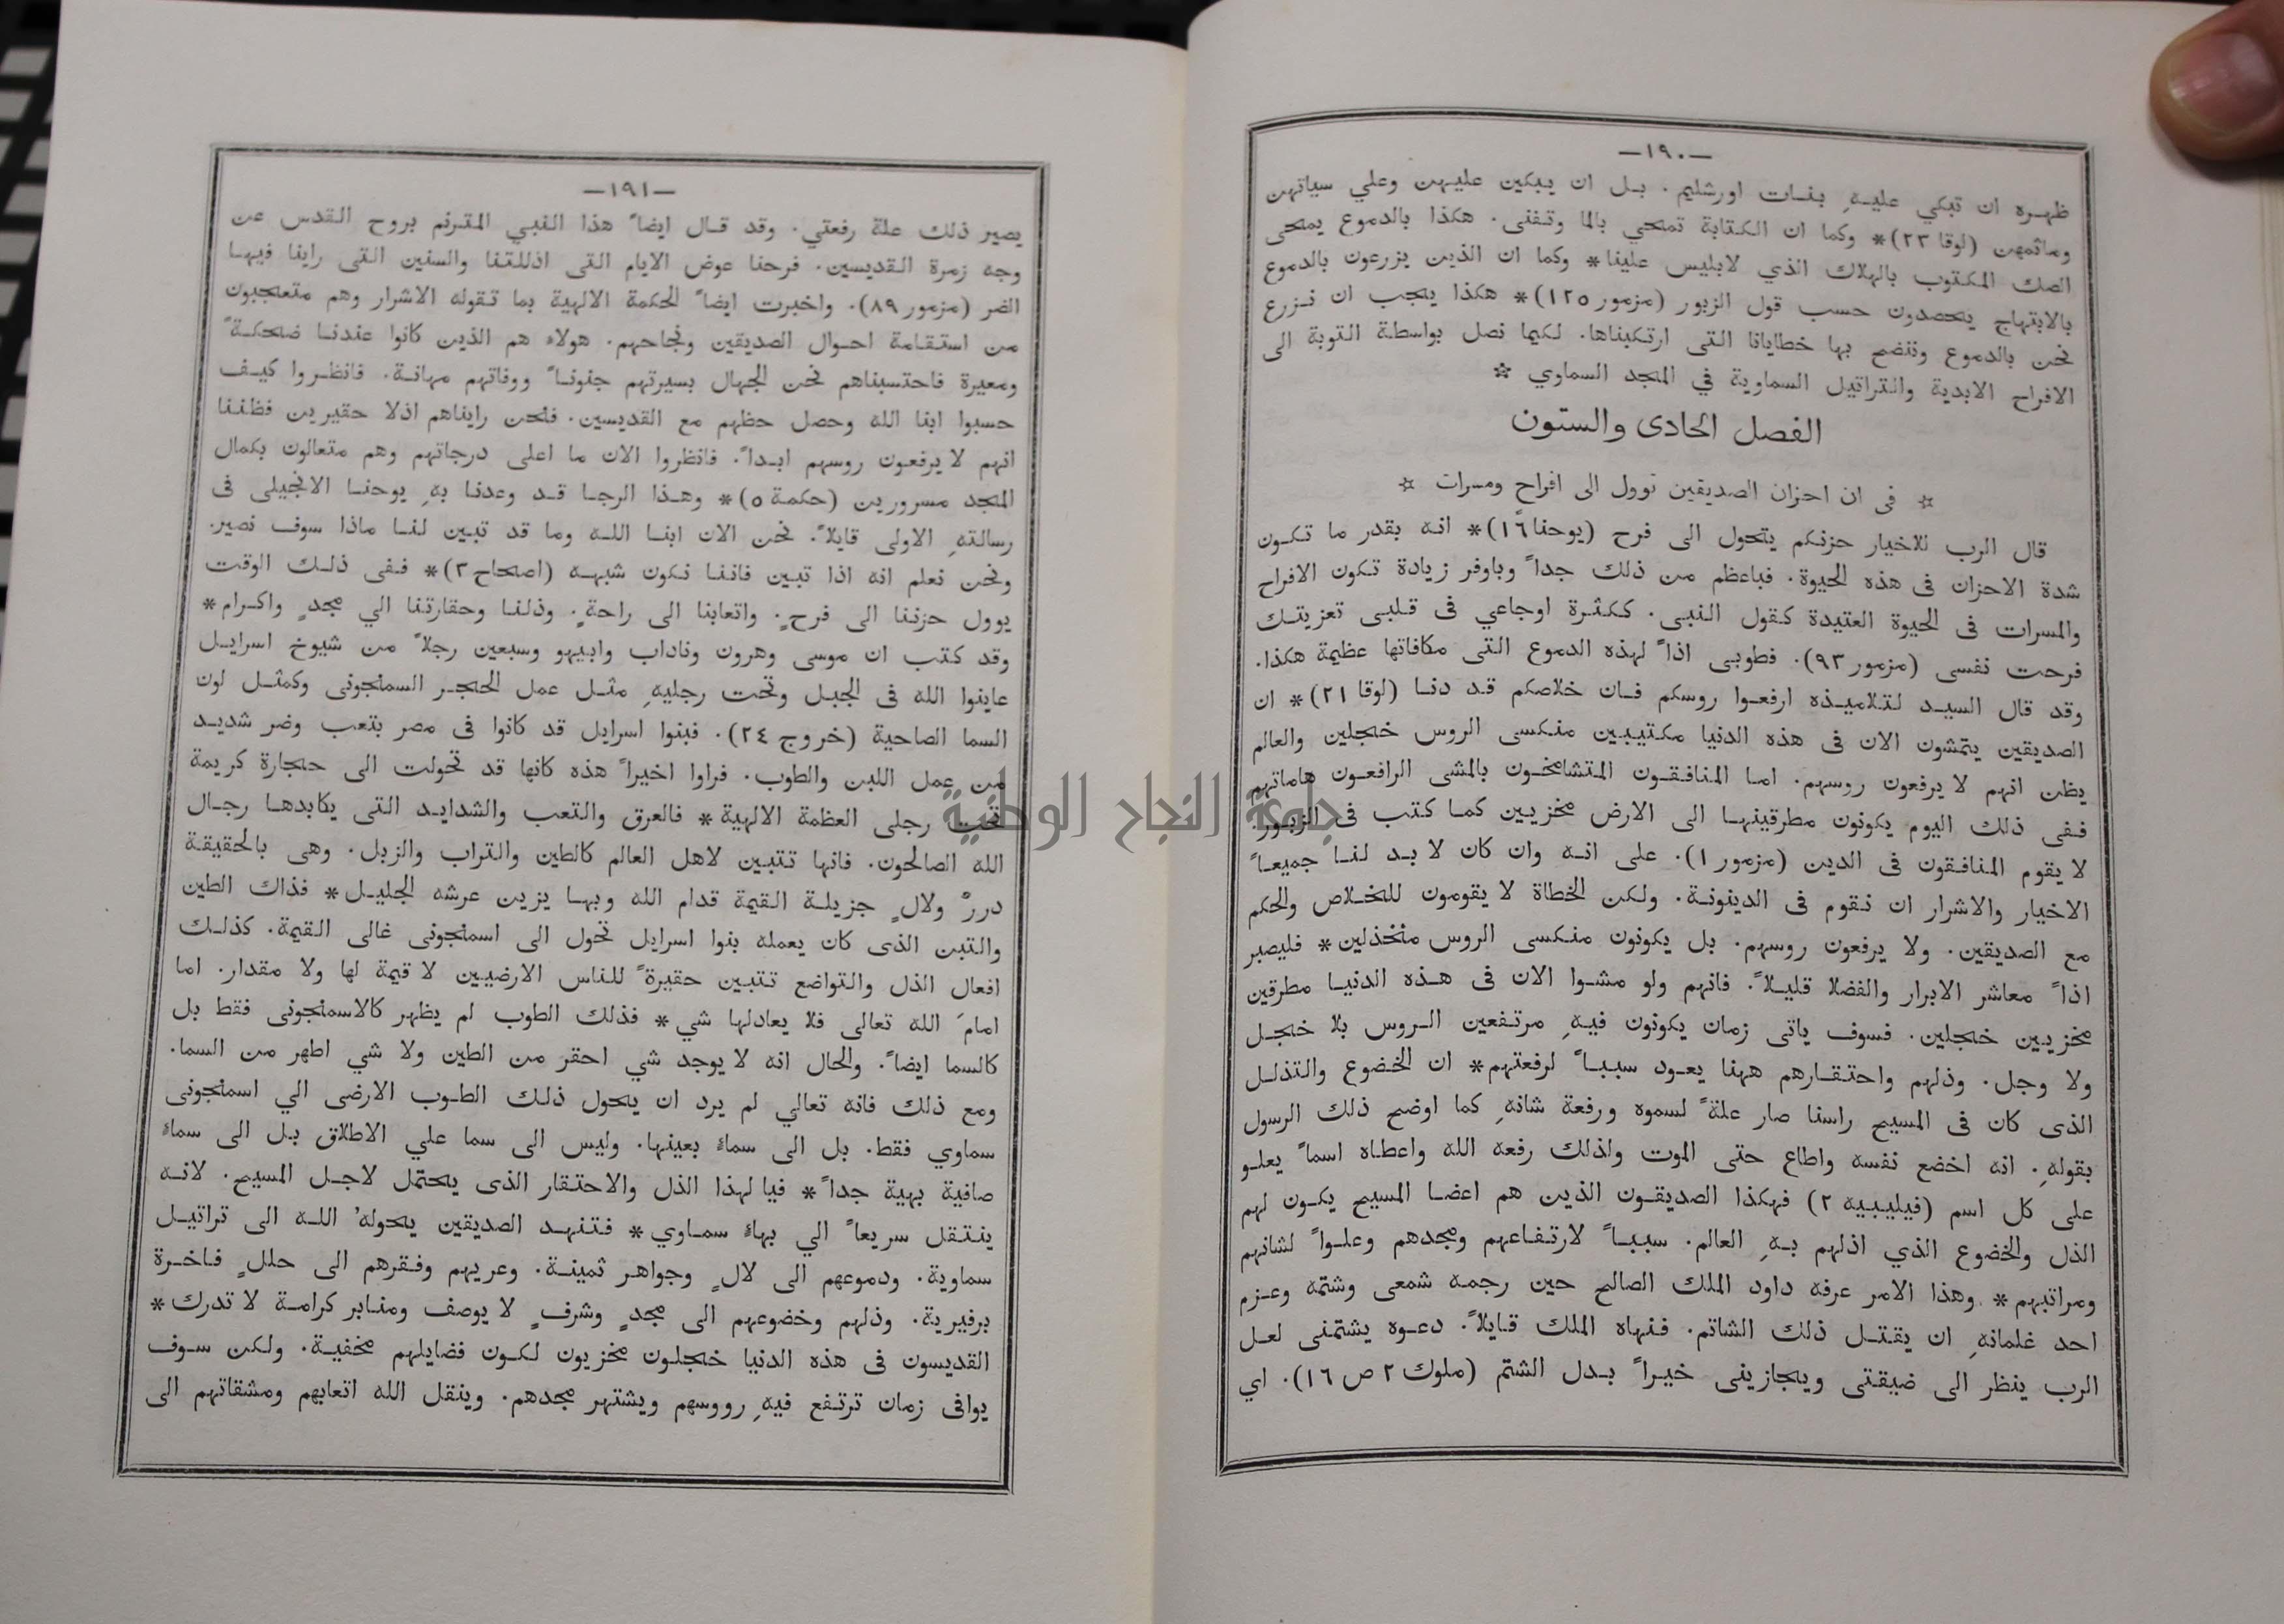 —١٩٠—
ظهره ان تبكي عليهِ بنات اورشليم. بل ان يبكين عليهن وعلي سياتهن
وماثمهن (لوقا ٢٣)* وكما ان الكتابة تمتحي بالما وتفنى. هكذا بالدموع يمتحى
الصك المكتوب بالهلاك الذي لابليس علينا* وكما ان الذين يزرعون بالدموع
بالابتهاج يحصدون حسب قول الزبور (مزمور ١٢٥)* هكذا يجب ان نزرع
نحن بالدموع وننضح بها خطايانا التى ارتكبناها. لكيما نصل بواسطة التوبة الى
الافراح الابدية والتراتيل السماوية في المجد السماوي ☆
الفصل الحادى والستون
☆ فى ان احزان الصديقين توول الى افراحٍ ومسرات ☆
قال الرب للاخيار حزنكم يتحول الى فرح (يوحنا ١٦)* انه بقدر ما تكون
شدة الاحزان فى هذه الحيوة. فباعظم من ذلك جداً وباوفر زيادة تكون الافراح
والمسرات فى الحيوة العتيدة كقول النبى. ككثرة اوجاعي فى قلبى تعزيتك
فرحت نفسى (مزمور ٩٣). فطوبى اذاً لهذه الدموع التى مكافاتها عظيمة هكذا.
وقد قال السيد لتلاميذه ارفعوا روسكم فان خلاصكم قد دنا (لوقا ٢١)* ان
الصديقين يتمشون الان فى هذه الدنيا مكتيبين منكسى الروس خجلين والعالم
يظن انهم لا يرفعون روسهم. اما المنافقون المتشامخون بالمشى الرافعون هاماتهم
ففى ذلك اليوم يكونون مطرقينها الى الارض مخزيين كما كتب فى الزبور.
لا يقوم المنافقون فى الدين (مزمور ١). على انه وان كان لا بد لنا جميعاً
الاخيار والاشرار ان نقوم فى الدينونة. ولكن الخطاة لا يقومون للخلاص والحكم
مع الصديقين. ولا يرفعون روسهم. بل يكونون منكسى الروس متخذلين* فليصبر
اذاً معاشر الابرار والفضلا قليلاً. فانهم ولو مشوا الان فى هذه الدنيا مطرقين
مخزيين خجلين. فسوف ياتى زمان يكونون فيهِ مرتفعين الروس بلا خجل
ولا وجل. وذلهم واحتقارهم ههنا يعود سبباً لرفعتهم* ان الخضوع والتذلل
الذى كان فى المسيح راسنا صار علةً لسموه ورفعة شانهِ كما اوضح ذلك الرسول
بقولهِ. انه اخضع نفسه واطاع حتى الموت ولذلك رفعه الله واعطاه اسماً يعلو
على كل اسم (فيليبيه ٢) فهكذا الصديقون الذين هم اعضا المسيح يكون لهم
الذل والخضوع الذي اذلهم بهِ العالم. سبباً لارتفاعهم ومجدهم وعلواً لشانهم
ومراتبهم* وهذا الامر عرفه داود الملك الصالح حين رجمه شمعى وشتمه وعزم
احد غلمانهِ ان يقتل ذلك الشاتم. فنهاه الملك قايلاً. دعوه يشتمنى لعل
الرب ينظر الى ضيقتى ويجازينى خيراً بدل الشتم (ملوك ٢ ص ١٦). اي
—١٩١—
يصير ذلك علة رفعتي. وقد قال ايضاً هذا النبي المترنم بروح القدس عن
وجه زمرة القديسين. فرحنا عوض الايام التى اذللتنا والسنين التى راينا فيها
الضر (مزمور ٨٩). واخبرت ايضاً الحكمة الالهية بما تقوله الاشرار وهم متعجبون
من استقامة احوال الصديقين ونجاحهم. هولاء هم الذين كانوا عندنا ضحكةً
ومعيرة فاحتسبناهم نحن الجهال بسيرتهم جنوناً ووفاتهم مهانة. فانظروا كيف
حسبوا ابنا الله وحصل حظهم مع القديسين. فنحن رايناهم اذلا حقيرين فظننا
انهم لا يرفعون روسهم ابداً. فانظروا الان ما اعلى درجاتهم وهم متعالون بكمال
المجد مسرورين (حكمة ٥)* وهذا الرجا قد وعدنا بهِ يوحنا الانجيلى فى
رسالتهِ الاولى قايلاً. نحن الان ابنا الله وما قد تبين لنا ماذا سوف نصير.
ونحن نعلم انه اذا تبين فاننا نكون شبهه (اصحاح ٣)* ففى ذلك الوقت
يوول حزننا الى فرحٍ. واتعابنا الى راحةٍ. وذلنا وحقارتنا الي مجدٍ واكرام*
وقد كتب ان موسى وهرون وناداب وابيهو وسبعين رجلاً من شيوخ اسرايل
عاينوا الله فى الجبل وتحت رجليهِ مثل عمل الحجر السمنجونى وكمثل لون
السما الصاحية (خروج ٢٤). فبنوا اسرايل قد كانوا فى مصر بتعب وضر شديد
من عمل اللبن والطوب. فراوا اخيراً هذه كانها قد تحولت الى حجارة كريمة
تحت رجلى العظمة الالهية* فالعرق والتعب والشدايد التى يكابدها رجال
الله الصالحون. فانها تتبين لاهل العالم كالطين والتراب والزبل. وهى بالحقيقة
دررٌ ولالٍ جزيلة القيمة قدام الله وبها يزين عرشه الجليل* فذاك الطين
والتبن الذى كان يعمله بنوا اسرايل تحول الى اسمنجونى غالى القيمة. كذلك
افعال الذل والتواضع تتبين حقيرةً للناس الارضيين لا قيمة لها ولا مقدار. اما
امامَ الله تعالى فلا يعادلها شي* فذلك الطوب لم يظهر كالاسمنجونى فقط بل
كالسما ايضاً. والحال انه لا يوجد شي احقر من الطين ولا شي اطهر من السما.
ومع ذلك فانه تعالي لم يرد ان يحول ذلك الطوب الارضى الي اسمنجونى
سماوي فقط. بل الى سماءٍ بعينها. وليس الى سما علي الاطلاق بل الى سماءٍ
صافية بهية جداً* فيا لهذا الذل والاحتقار الذى يحتمل لاجل المسيح. لانه
ينتقل سريعاً الي بهاءٍ سماوي* فتنهد الصديقين يحوله' الله الى تراتيل
سماوية. ودموعهم الى لالٍ وجواهر ثمينة. وعريهم وفقرهم الى حللٍ فاخرة
برفيرية. وذلهم وخضوعهم الى مجدٍ وشرفٍ لا يوصف ومنابر كرامة لا تدرك*
القديسون فى هذه الدنيا خجلون مخزيون لكون فضايلهم مخفية. ولكن سوف
يوافى زمان ترتفع فيهِ رووسهم ويشتهر مجدهم. وينقل الله اتعابهم ومشقاتهم الى
جامعة النجاح الوطنية